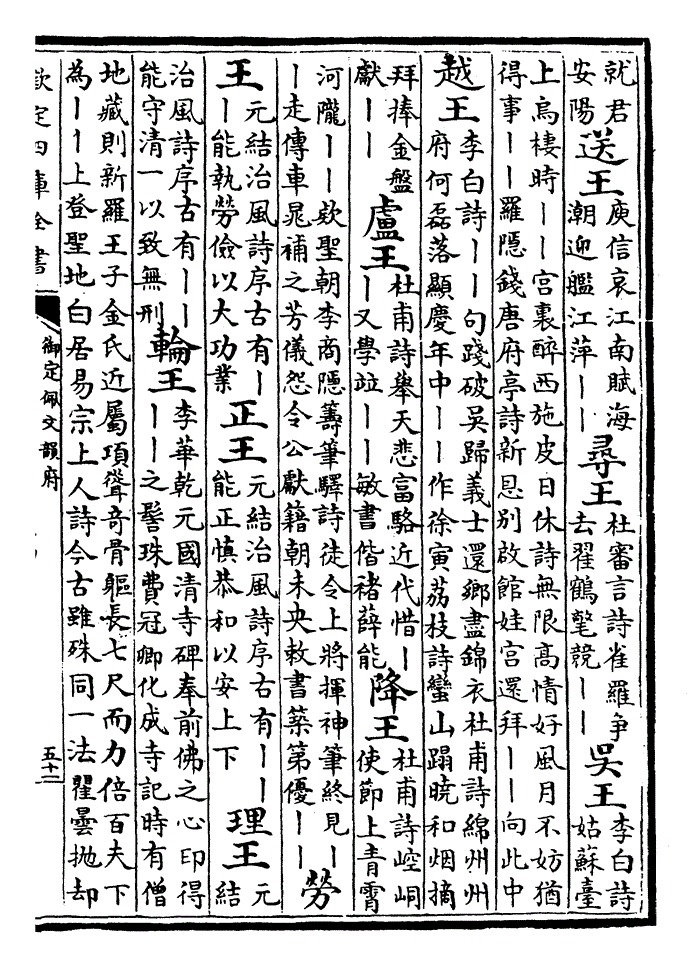 就君安陽 送王 庾信哀江南賦海潮迎艦江萍丨丨 尋王 杜審言詩雀羅爭去翟鶴氅競丨丨 吳王 李白詩姑蘇臺
上烏棲時丨丨宮裏醉西施皮日休詩無限高情好風月不妨猶
得事丨丨羅隱錢唐府亭詩新恩别啟館娃宮還拜丨丨向此中
越王 李白詩丨丨句踐破吳歸義士還鄉盡錦衣杜甫詩綿州州
府何磊落顯慶年中丨丨作徐寅荔枝詩蠻山蹋曉和烟摘
拜捧金盤獻丨丨 盧王 杜甫詩舉天悲富駱近代惜丨丨又學竝丨丨敏書偕禇薛能 降王 杜甫詩崆峒使節上青霄
河隴丨丨欵聖朝李商隱籌筆驛詩徒令上將揮神筆終見丨
丨走傳車晁補之芳儀怨令公獻籍朝未央敕書築第優丨丨 勞
王 元結治風詩序古有丨丨能執勞儉以大功業 正王 元結治風詩序古有丨丨能正慎恭和以安上下 理王 元結
治風詩序古有丨丨能守清一以致無刑 輪王 李華乾元國清寺碑奉前佛之心印得丨丨之髻珠費冠卿化成寺記時有僧
地藏則新羅王子金氏近屬項聳奇骨軀長七尺而力倍百夫下
為丨丨上登聖地白居易宗上人詩今古雖殊同一法瞿曇抛却
欽定四庫全書
御定佩文韻府
五十二